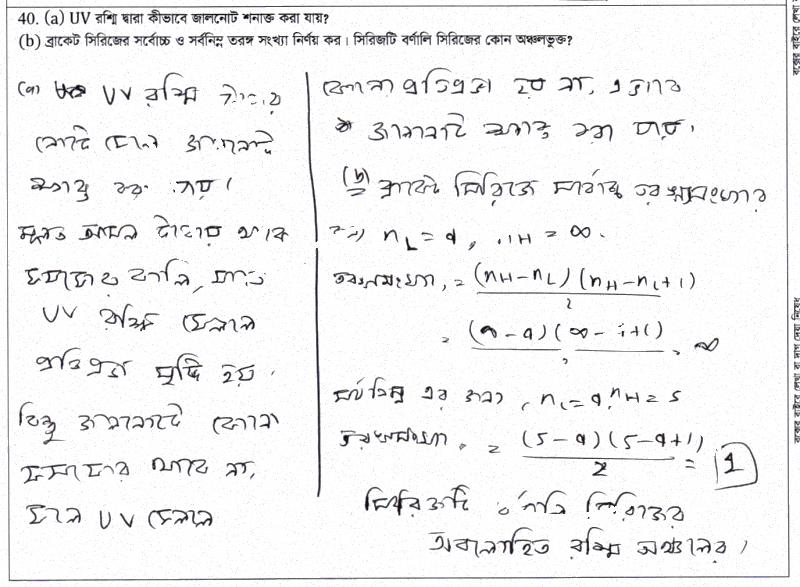 40. (a) UV রশ্মি দ্বারা কীভাবে জালনোট শনাক্ত করা যায়?
(b) ব্রাকেট সিরিজের সর্বোচ্চ ও সর্বনিম্ন তরঙ্গ সংখ্যা নির্ণয় কর। সিরিজটি বর্ণালি সিরিজের কোন অঞ্চলভুক্ত?
(a) UV রশ্মি টাকার
নোটে ফেলে জালনোট
শনাক্ত করা যায়।
মূলত আসল টাকায় থাকে
কালি, যাতে
UV রশ্মি ফেললে
প্রতিপ্রভা সৃষ্টি হয়।
কিন্তু জালনোটে কোনো
থাকে না,
ফলে UV ফেললে
কোনো প্রতিপ্রভা হয় না, এভাবে
জালনোট শনাক্ত করা যায়।
(b) ব্রাকেট সিরিজে সর্বোচ্চ তরঙ্গসংখ্যার
n_L = 4, n_H = ∞.
তরঙ্গসংখ্যা, = (n_H-n_L)(n_H-n_L+1) / 2
= (∞-4)(∞-4+1) / 2 = ∞
সর্বনিম্ন এর জন্য, n_L=4, n_H=5
তরঙ্গসংখ্যা, = (5-4)(5-4+1) / 2 = 1
সিরিজটি বর্ণালি সিরিজের
অবলোহিত রশ্মি অঞ্চলের।